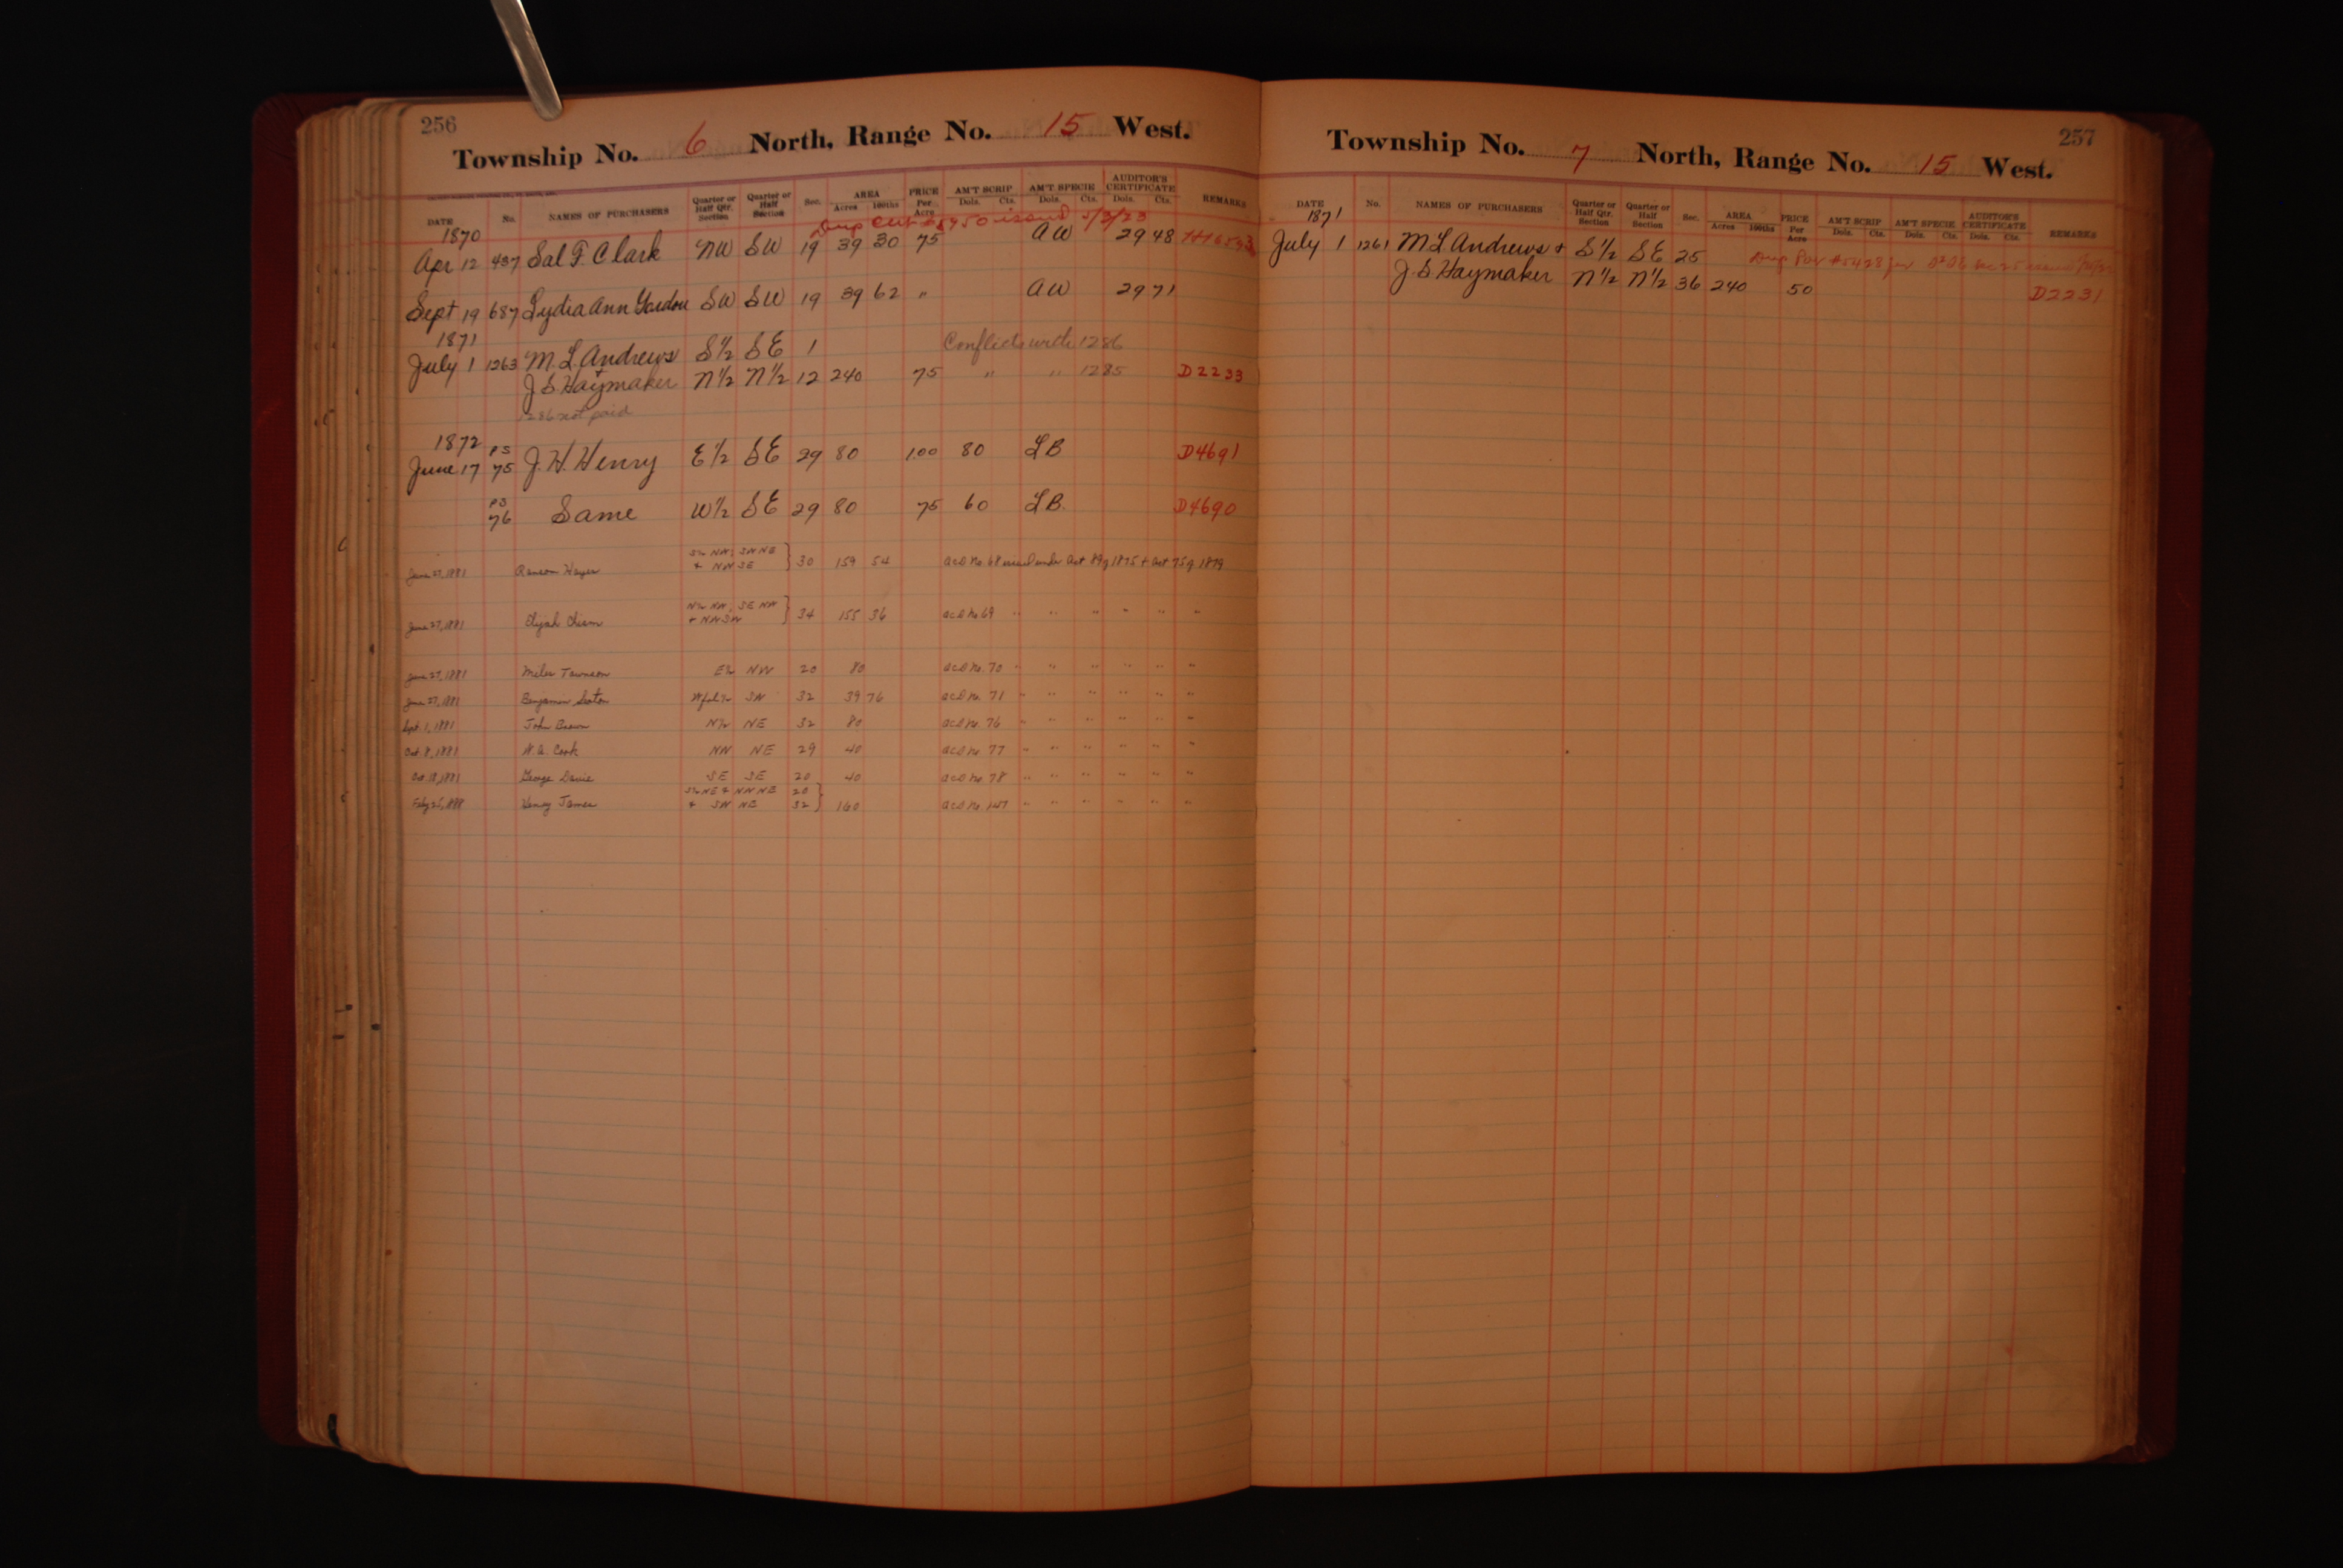 256
Township No. 6 North, Range No. 15 West.
DATE No. NAMES OF PURCHASERS Quarter or Half Qtr. Section Quarter or Half Section Sec. AREA Acres 100ths PRICE Per Acre AM'T SCRIP Dols. Cts. AM'T SPECIE Dols. Cts. AUDITOR'S CERTIFICATE Dols. Cts. REMARKS
1870 issued 5/3/23
Apr 12 437 Sal F. Clark NW SW 19 39 30 75 AW 29 48
Sept 19 687 Lydia Ann SW SW 19 39 62 " AW 29 71
1871
July 1 1263 M. L. Andrews S½ SE 1 Conflicts with 1286
J S Haymaker N½ N½ 12 240 75 " " 1285 D2233
1286 not paid
1872 PS
June 17 75 J. H. Henry E½ SE 29 80 1.00 80 LB D4691
PS
76 Same W½ SE 29 80 75 60 LB. D4690
S½ NW, SW NE
June 27, 1881 Ransom & NW SE } 30 159 54 acd No. 68 issued under Act 89 of 1875 + Act 75 of 1879
N½ NW, SE NW
June 27, 1881 Elijah & NW SW } 34 155 36 acd No 69 " " " " " "
June 27, 1881 Miles E½ NW 20 80 acd No. 70 " " " " " "
June 27, 1881 Benjamin W frl ½ SW 32 39 76 acd No. 71 " " " " " "
Sept. 1, 1881 John Brown N½ NE 32 80 acd No. 76 " " " " " "
Oct. 8, 1881 Cook NW NE 29 40 acd No. 77 " " " " " "
Oct. 18, 1881 George Davis SE SE 20 40 acd No. 78 " " " " " "
S½ NE & NW NE 20
Henry James & SW NE 32 } 160 acd No. 147 " " " " " "
257
Township No. 7 North, Range No. 15 West.
DATE No. NAMES OF PURCHASERS Quarter or Half Qtr. Section Quarter or Half Section Sec. AREA Acres 100ths PRICE Per Acre AM'T SCRIP Dols. Cts. AM'T SPECIE Dols. Cts. AUDITOR'S CERTIFICATE Dols. Cts. REMARKS
1871
July 1 1261 M L Andrews + S½ SE 25
J. S Haymaker N½ N½ 36 240 50 D2231